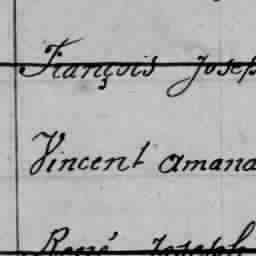 François Josep
Vincent Amand
René Joseph